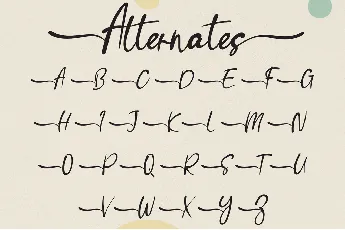 Alternates
A B C D E F G
H I J K L M N
O P Q R S T U
V W X Y Z